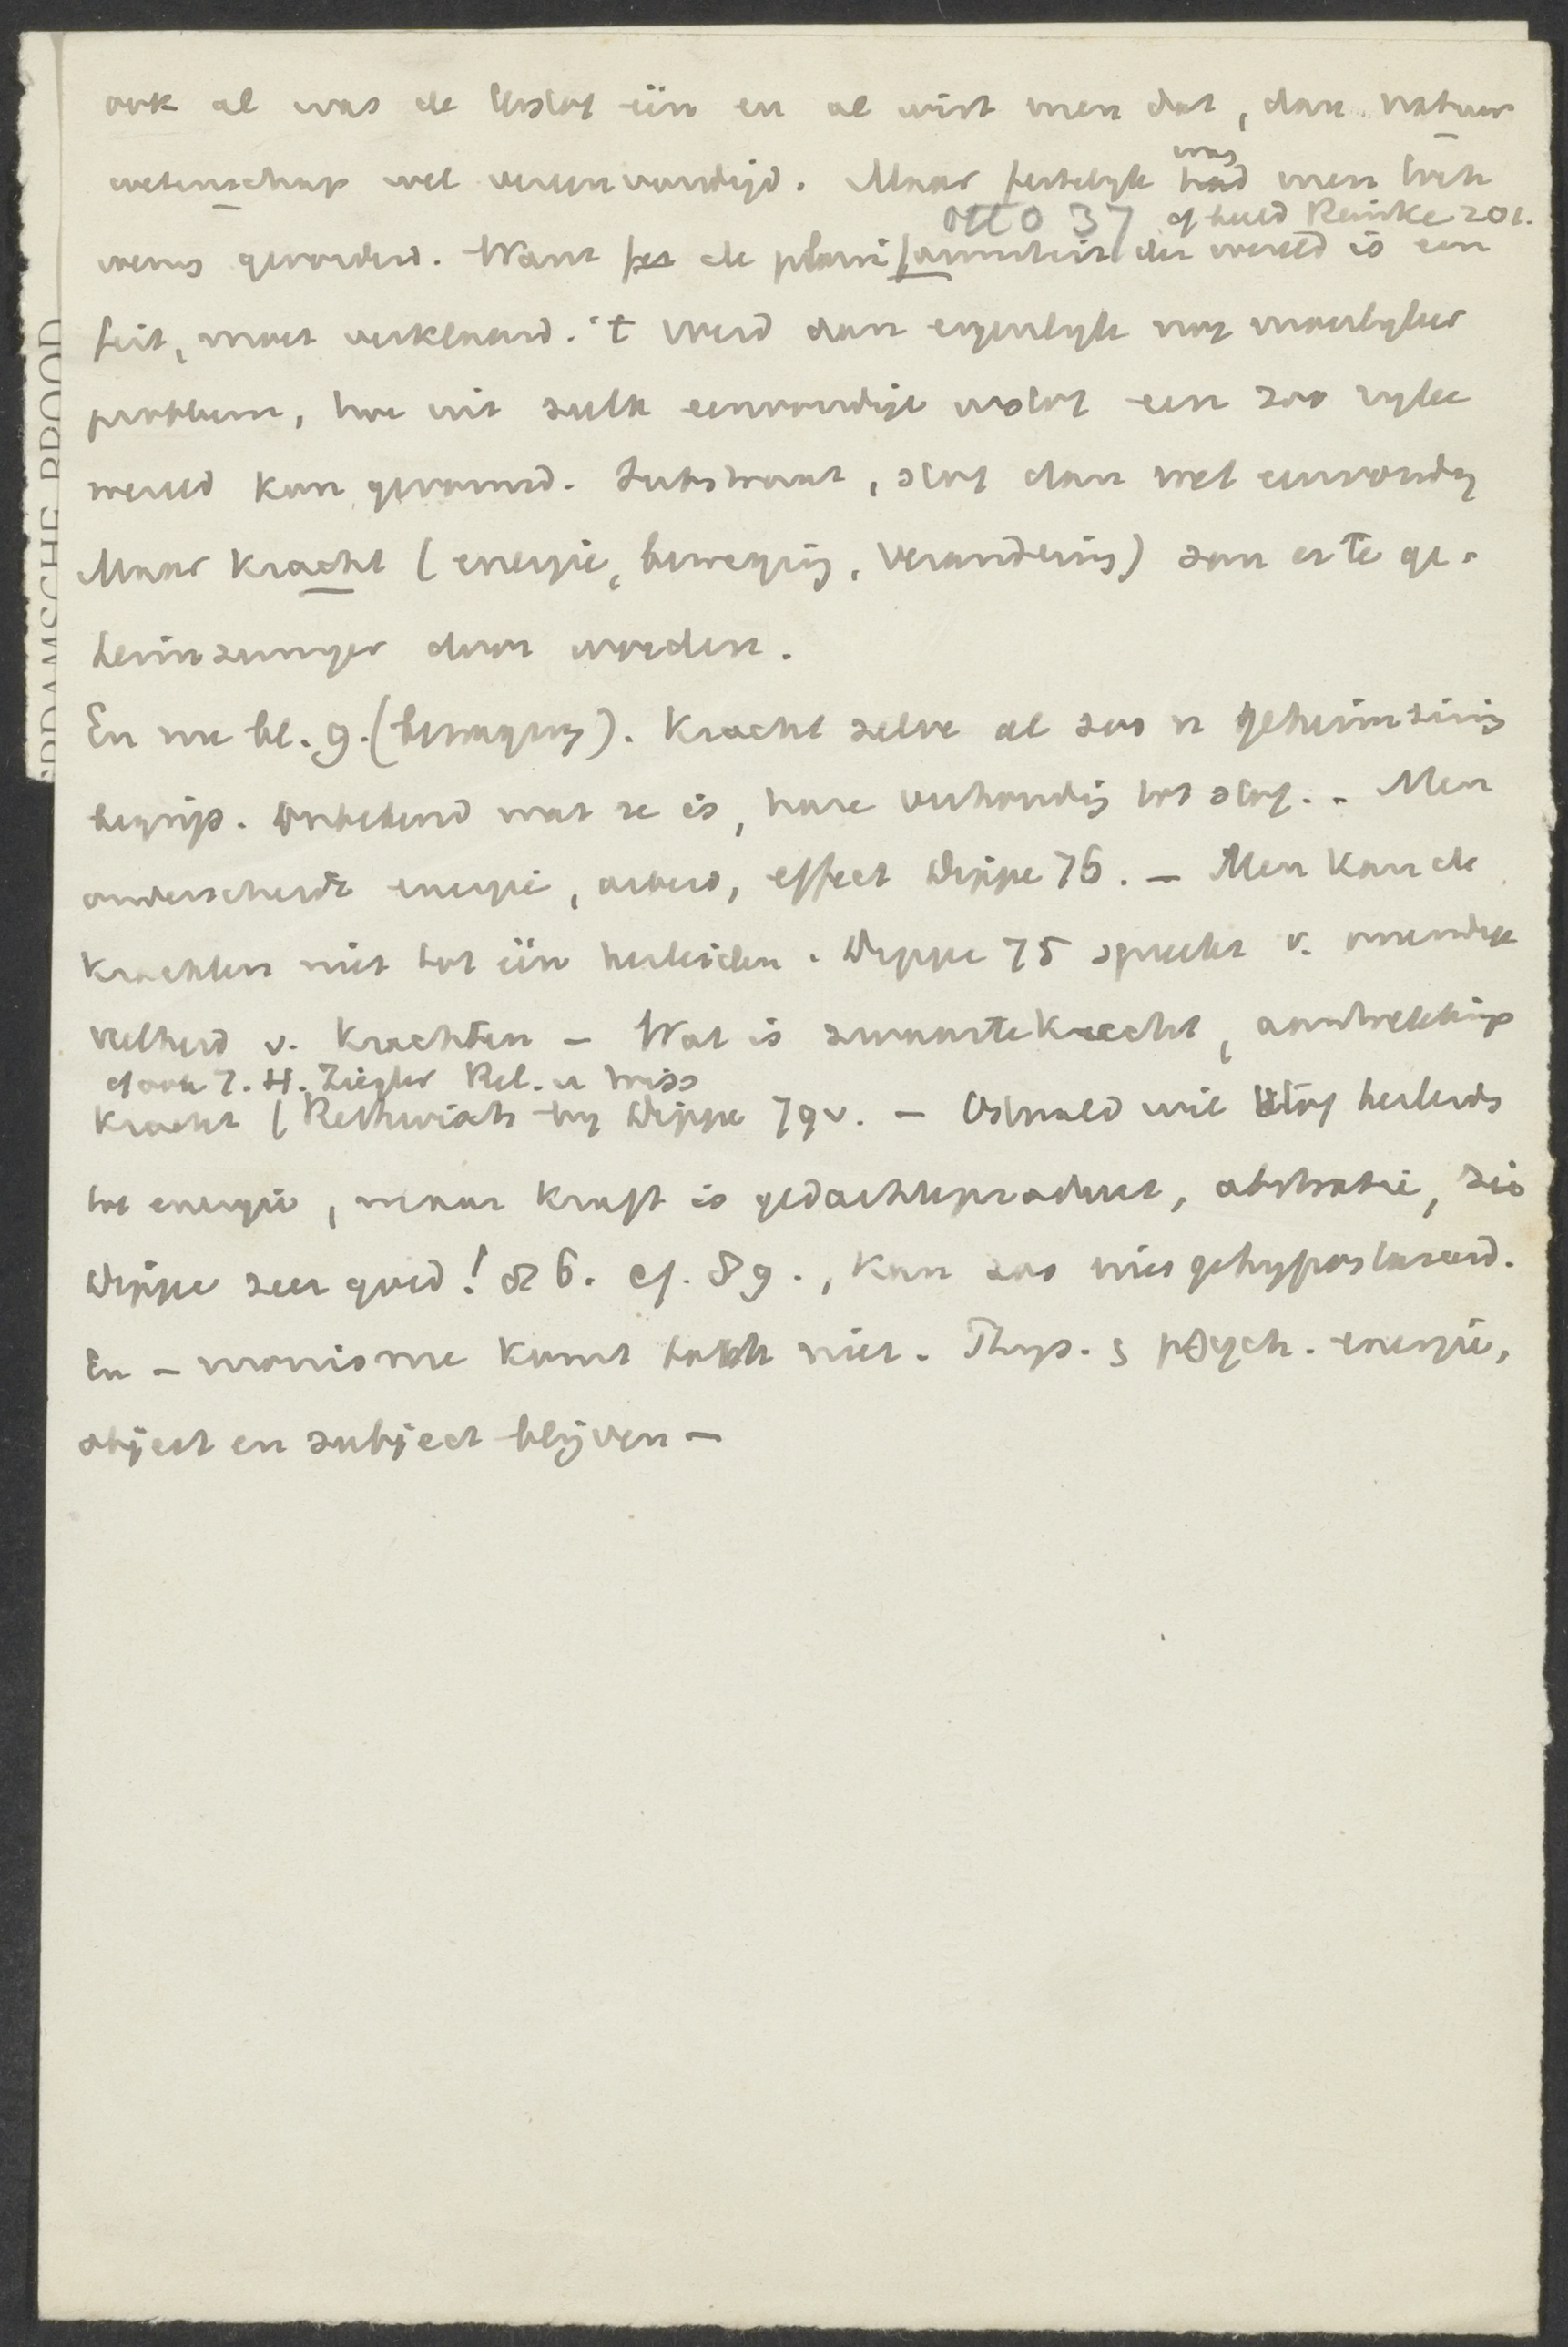 ook al was de Urstof één en al wist men dat, dan natuur
wetenschap wel vereenvoudigd. Maar feitelijk was had men toch
Otto 37 cf heeld Reinke 201.
weinig gevorderd. Want het de pluriformiteit der wereld is een
feit, moet verklaard. 't Werd dan eigenlijk nog moeilijker
probleem, hoe uit zulk eenvoudige urstof een zoo rijke
wereld kon gevormd. Substraat, stof dan wel eenvoudig
Maar kracht (energie, beweging, verandering) zou er te ge-
heimzinniger door worden.
En nu bl. 9. (beweging). Kracht zelve al zoo n geheimzinnig
begrip. Onbekend wat ze is, hare verhouding tot stof. - Men
onderscheidt energie, arbeid, effect Dippe 76. - Men kan de
krachten niet tot één herleiden. Dippe 75 spreekt v. oneindige
veelheid v. krachten - Wat is zwaartekracht, aantrekkings
cf ook J. H. Ziegler Rel. u Wiss
kracht (Rethwisch by Dippe 79v. - Ostwald wil stof herleiden
tot energie, maar kraft is gedachteproduct, abstractie, zie
Dippe zeer goed! 86. cf. 89., kan zoo niet gehypostaseerd.
En - monisme komt toch niet. Phys. & psych. energie,
object en subject blijven -
ERDAMSCHE BROOD